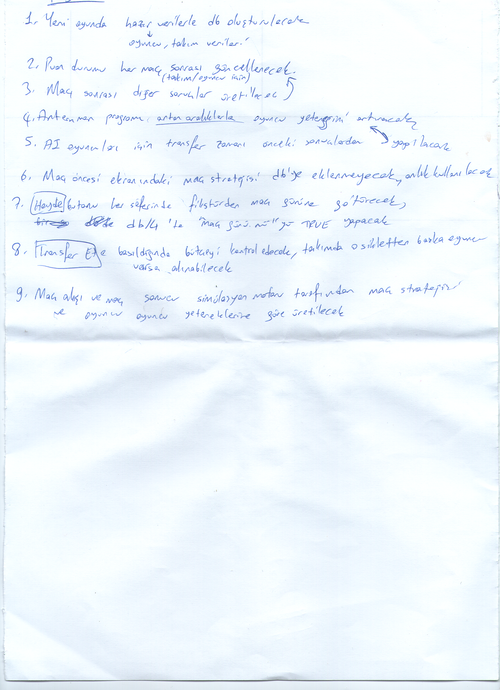 1. Yeni oyunda hazır verilerle db oluşturulacak
oyuncu, takım verileri
2. Puan durumu her maç sonrası güncellenecek.
(takım/oyuncu için)
3. Maç sonrası diğer sonuçlar üretilecek
4. Antenman programı artan aralıklarla oyuncu yeteneğini artıracak,
5. AI oyuncuları için transfer zamanı önceki sonuçlardan yapılacak
6. Maç öncesi ekranındaki maç stratejisi db'ye eklenmeyecek, anlık kullanılacak
7. Hayde butonu her seferinde fikstürden maç gününe götürecek,
db/lig 'de "maç günü mü"yü TRUE yapacak
8. Transfer Et'e basıldığında bütçeyi kontrol edecek, takımda o sikletten başka oyuncu
varsa alınabilecek
9. Maç akışı ve maç sonucu simülasyon motoru tarafından maç stratejisi
ve oyuncu oyuncu yeteneklerine göre üretilecek